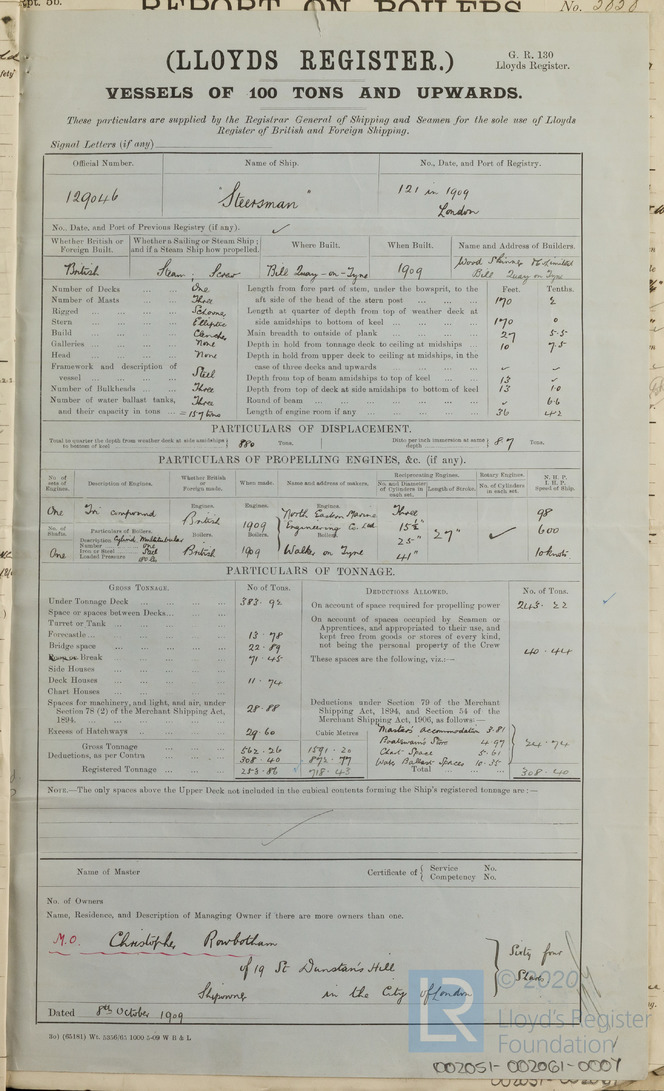 Rpt. 5b.
REPORT ON BOILERS
No. 2020
(LLOYDS REGISTER.)
G. R. 130
Lloyds Register.
VESSELS OF 100 TONS AND UPWARDS.
These particulars are supplied by the Registrar General of Shipping and Seamen for the sole use of Lloyds
Register of British and Foreign Shipping.
Signal Letters (if any)
Official Number. Name of Ship. No., Date, and Port of Registry.
129046 "Steersman" 121 in 1909
London
No., Date, and Port of Previous Registry (if any).
Whether British or Foreign Built. Whether a Sailing or Steam Ship; and if a Steam Ship how propelled. Where Built. When Built. Name and Address of Builders.
British Steam; Screw Bill Quay-on-Tyne 1909 Wood Skinner & Co Limited
Bill Quay on Tyne
Number of Decks ... ... One
Number of Masts ... ... Three
Rigged ... ... ... Schooner
Stern ... ... ... Elliptic
Build ... ... ... Clencher
Galleries ... ... ... None
Head ... ... ... None
Framework and description of
vessel ... ... ... Steel
Number of Bulkheads ... ... Three
Number of water ballast tanks, Three
and their capacity in tons ... = 157 tons
Feet. Tenths.
Length from fore part of stem, under the bowsprit, to the
aft side of the head of the stern post ... ... ... 170 2
Length at quarter of depth from top of weather deck at
side amidships to bottom of keel ... ... ... 170 0
Main breadth to outside of plank ... ... ... 27 5·5
Depth in hold from tonnage deck to ceiling at midships ... 10 7·5
Depth in hold from upper deck to ceiling at midships, in the
case of three decks and upwards ... ... ... ✓ ✓
Depth from top of beam amidships to top of keel ... ... 13 ✓
Depth from top of deck at side amidships to bottom of keel 13 10
Round of beam ... ... ... ✓ 66
Length of engine room if any ... ... ... 36 42
PARTICULARS OF DISPLACEMENT.
Total to quarter the depth from weather deck at side amidships to bottom of keel } 880 Tons. Ditto per inch immersion at same depth } 8·7 Tons.
PARTICULARS OF PROPELLING ENGINES, &c. (if any).
No. of sets of Engines. Description of Engines. Whether British or Foreign made. When made. Name and address of makers. Reciprocating Engines. Rotary Engines. N. H. P. I. H. P. Speed of Ship.
No. and Diameter of Cylinders in each set. Length of Stroke. No. of Cylinders in each set.
Engines. Engines. Engines.
One Tri compound British 1909 North Eastern Marine Engineering Co. Ltd Three 98
15½" 27" ✓ 600
25"
41" 10 knots
No. of Shafts. Particulars of Boilers. Boilers. Boilers. Boilers.
Description Cylind. Multitubular
Number One
Iron or Steel Steel
Loaded Pressure 180 lbs
One British 1909 Walker on Tyne
PARTICULARS OF TONNAGE.
GROSS TONNAGE. No of Tons.
Under Tonnage Deck ... 383·92
Space or spaces between Decks...
Turret or Tank ...
Forecastle ... 13·78
Bridge space ... 22·89
Poop or Break ... 71·45
Side Houses ...
Deck Houses ... 11·74
Chart Houses ...
Spaces for machinery, and light, and air, under
Section 78 (2) of the Merchant Shipping Act,
1894. ... 28·88
Excess of Hatchways ... 29·60
Cubic Metres
Gross Tonnage 562·26 1591·20
Deductions, as per Contra ... 308·40 872·77
Registered Tonnage ... 253·86 718·43
DEDUCTIONS ALLOWED. No. of Tons.
On account of space required for propelling power 243·22
On account of spaces occupied by Seamen or
Apprentices, and appropriated to their use, and
kept free from goods or stores of every kind,
not being the personal property of the Crew 40·44
These spaces are the following, viz.:—
Deductions under Section 79 of the Merchant
Shipping Act, 1894, and Section 54 of the
Merchant Shipping Act, 1906, as follows:—
Master's accommodation 3·81
Boatswain's Store 4·97
Chart Space 5·61
Water Ballast Spaces 10·35
24·74
Total ... 308·40
NOTE.—The only spaces above the Upper Deck not included in the cubical contents forming the Ship's registered tonnage are:—
Name of Master Certificate of { Service No.
Competency No.
No. of Owners
Name, Residence, and Description of Managing Owner if there are more owners than one.
M.O. Christopher Rowbotham
of 19 St Dunstan's Hill
Shipowner in the City of London
Sixty four
Shares
Dated 8th October 1909
3o) (65181) Wt. 5356/65 1000 5-09 W B & L
LR
© 2020
Lloyd's Register
Foundation
002051-002061-0007